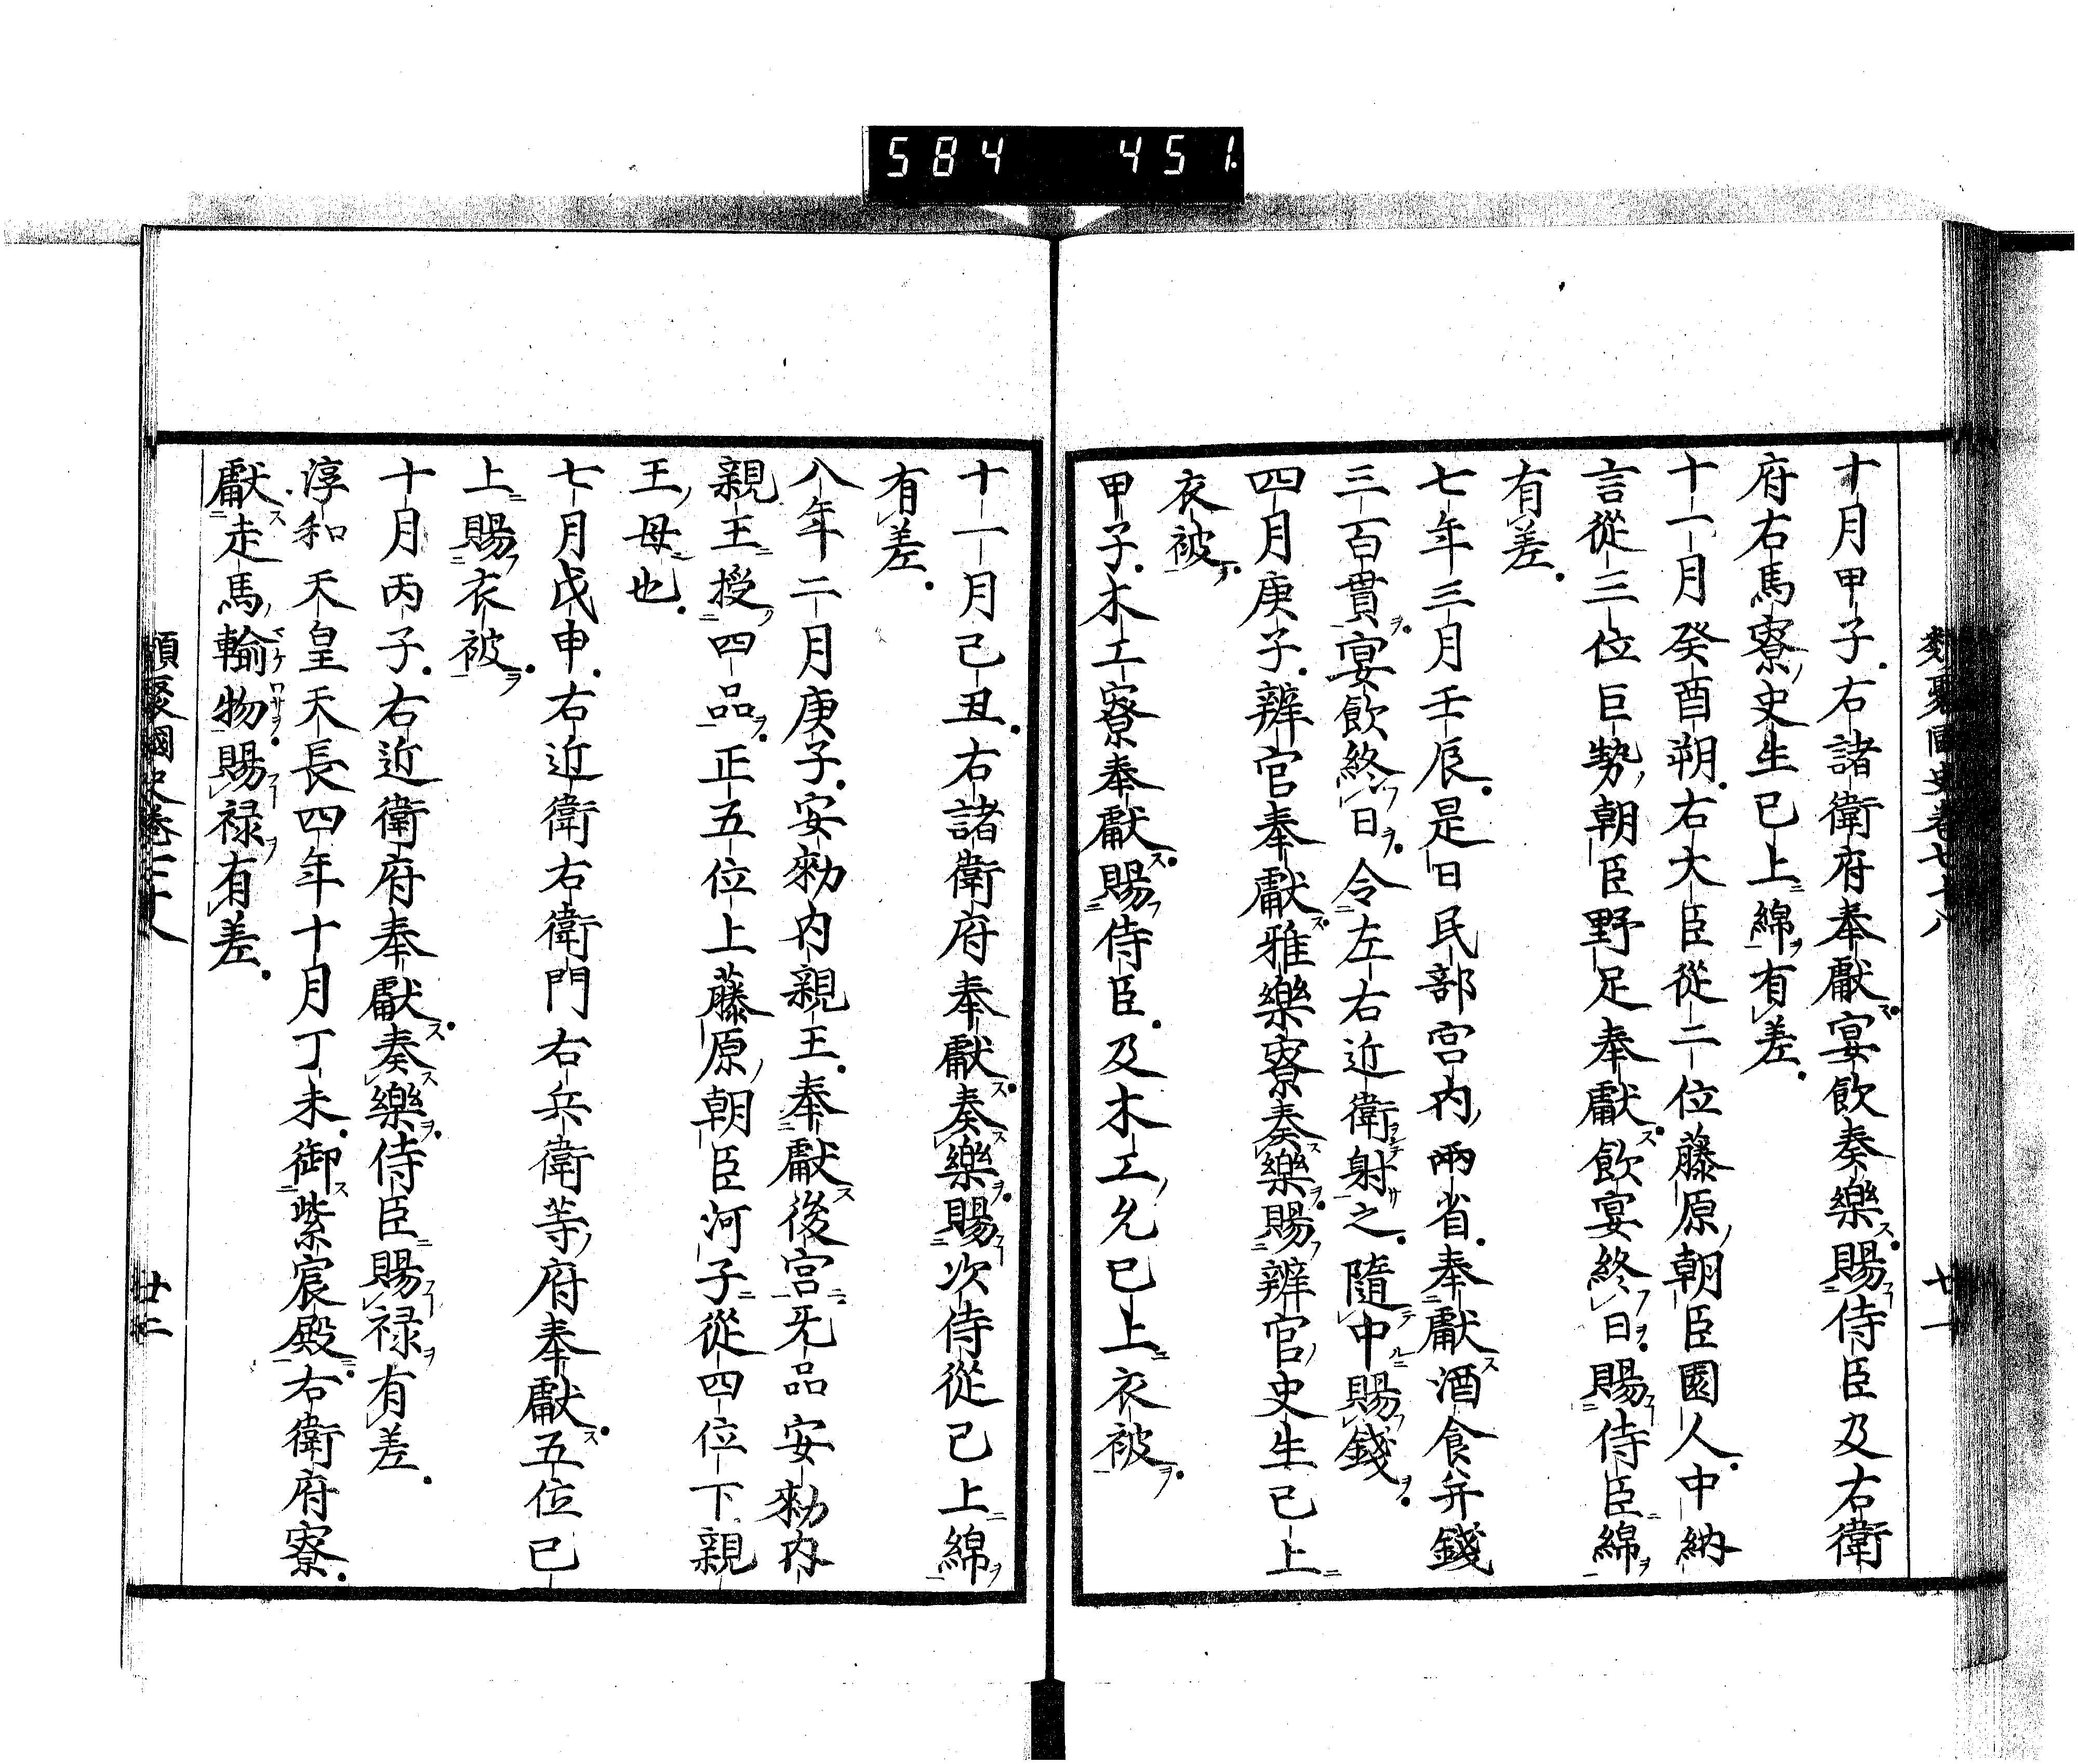 584 451.
十月甲子右諸衛府奉獻宴飲奏樂賜侍臣及右衛
府右馬寮史生已上綿有差
十一月癸酉朔右大臣從二位藤原朝臣園人中納
言從三位巨勢朝臣野足奉獻飲宴終日賜侍臣綿
有差
七年三月壬辰是日民部宮内兩省奉獻酒食并錢
三百貫宴飲終日令左右近衛射之隨中賜錢
四月庚子辨官奉獻雅樂寮奏樂賜辨官史生已上
衣被
甲子木工寮奉獻賜侍臣及木工允已上衣被
十一月己丑右諸衛府奉獻奏樂賜次侍從已上綿
有差
八年二月庚子安勅内親王奉獻後宮无品安勅内
親王授四品正五位上藤原朝臣河子從四位下親
王母也
七月戊申右近衛右衛門右兵衛等府奉獻五位已
上賜衣被
十月丙子右近衛府奉獻奏樂侍臣賜禄有差
淳和天皇天長四年十月丁未御紫宸殿右衛府寮
獻走馬輸物賜禄有差
類聚國史卷七十八
廿二